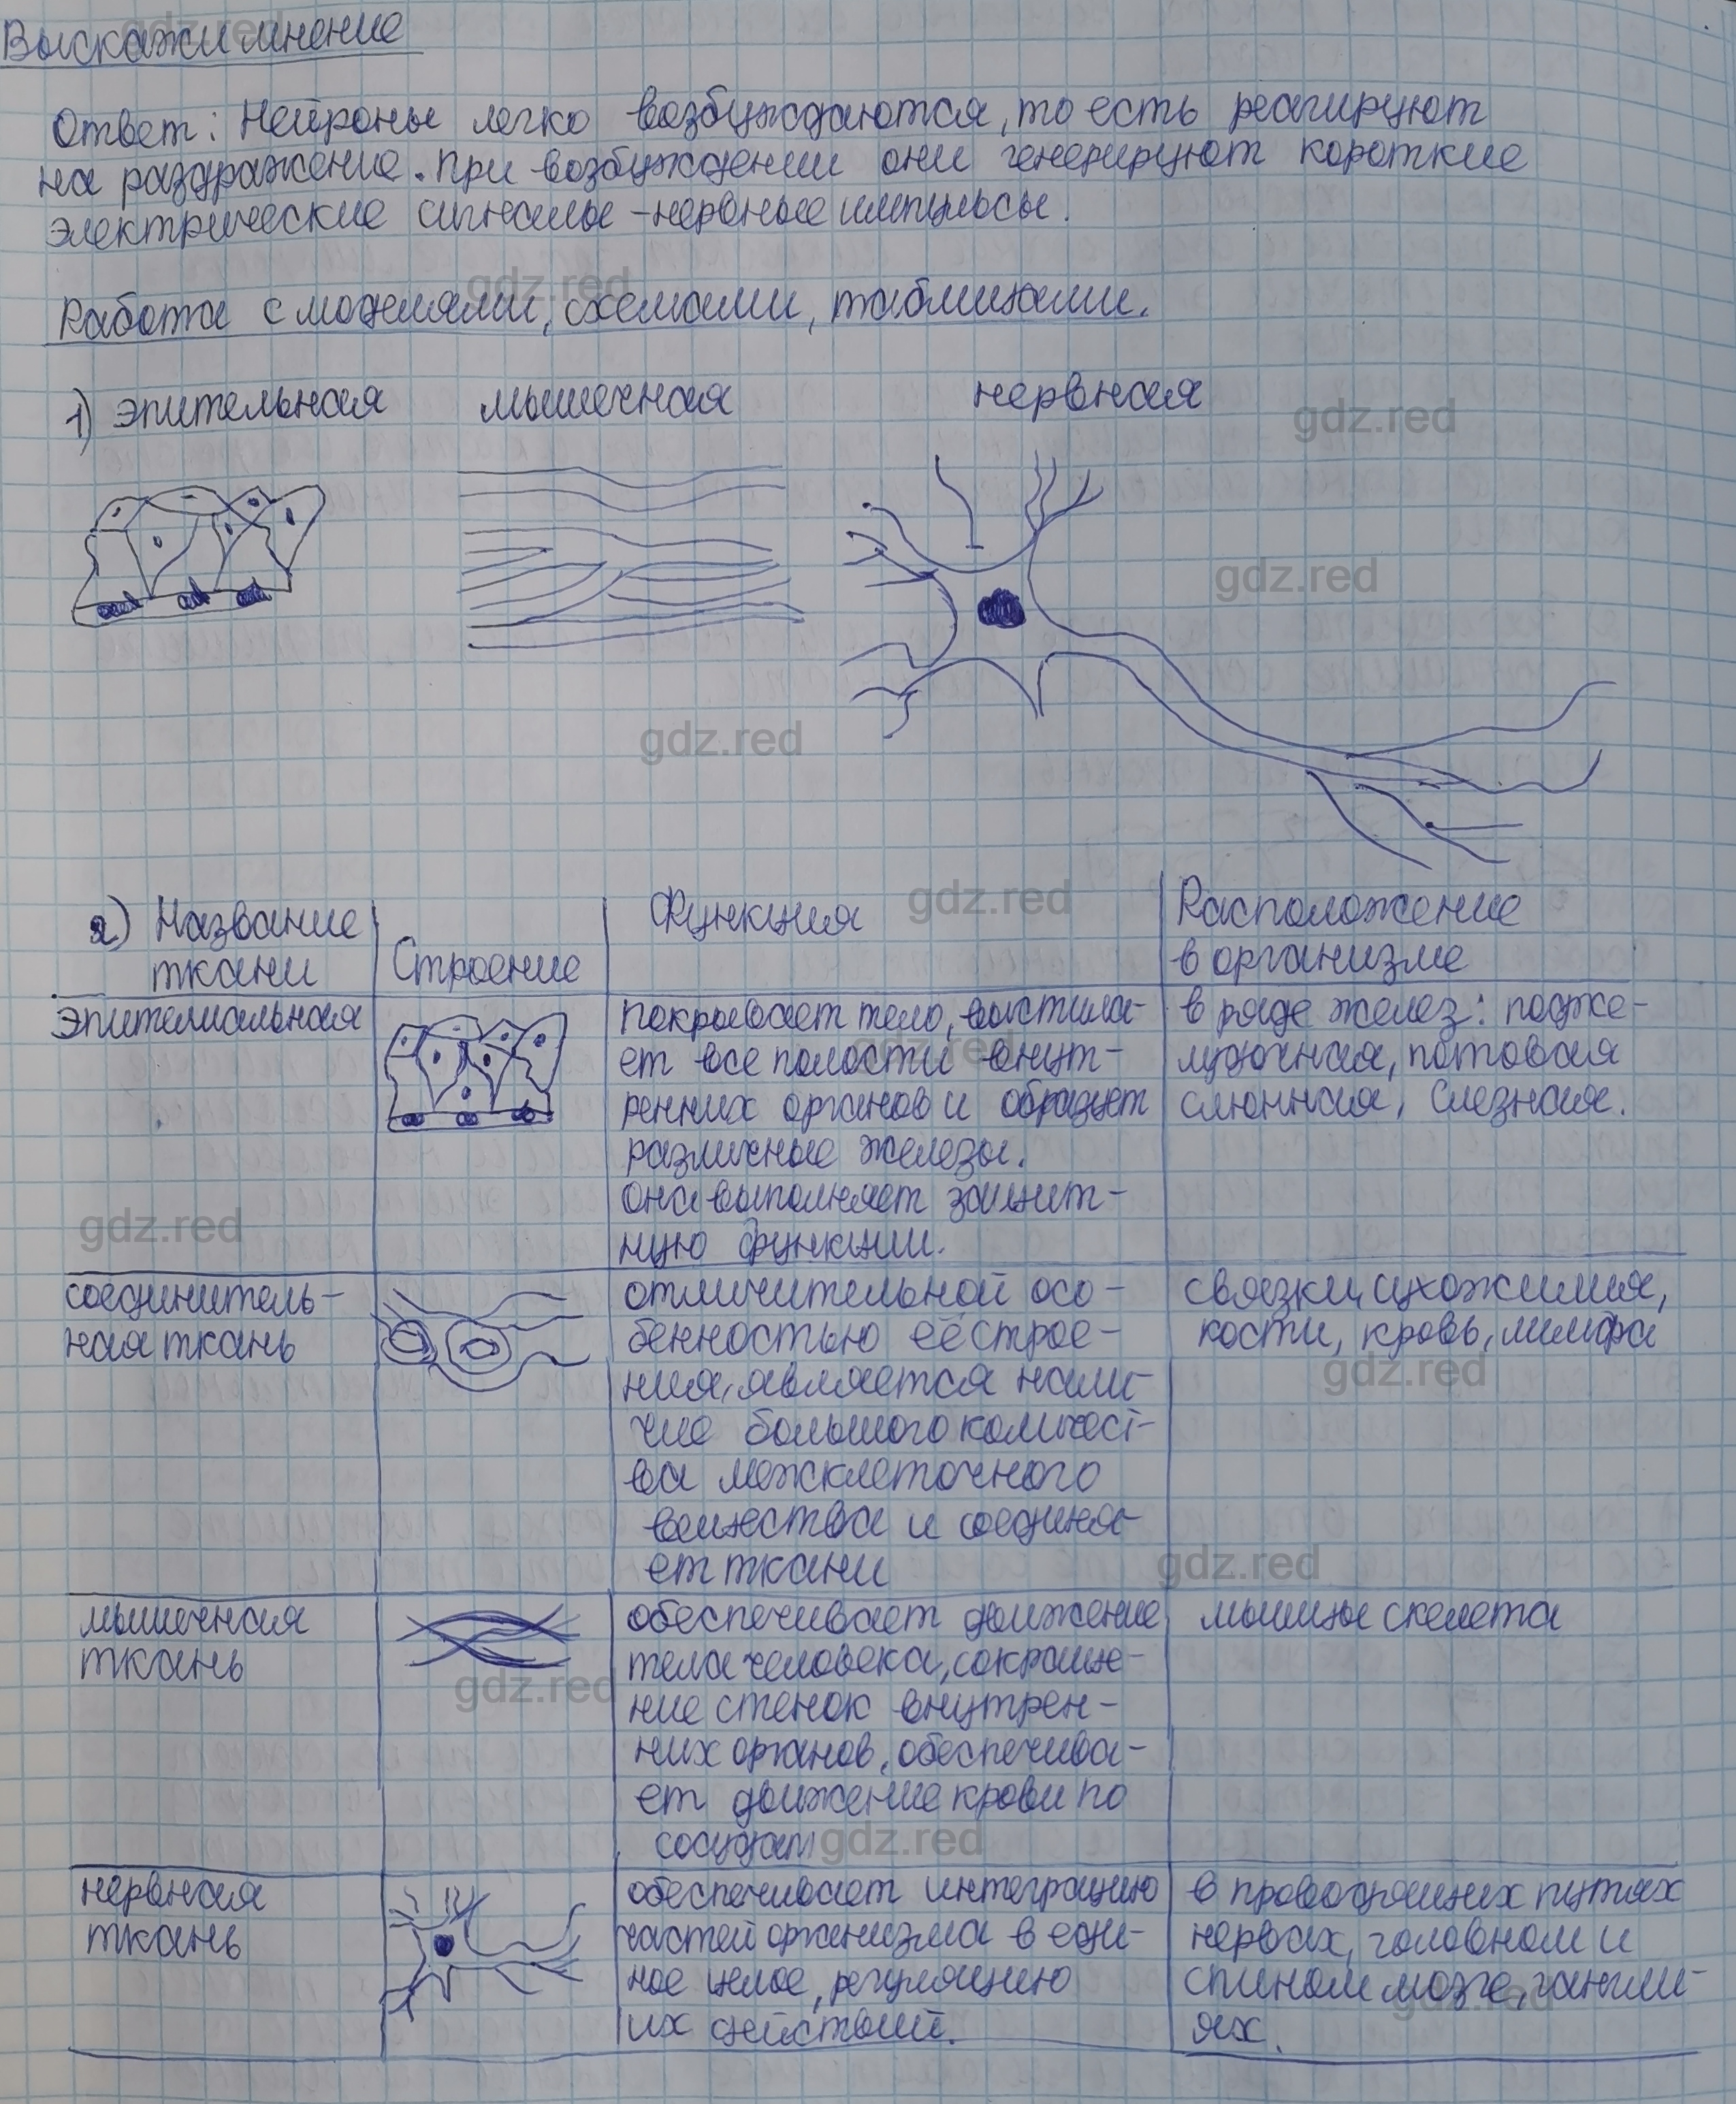 Выскажи мнение
Ответ: Нейроны легко возбуждаются, то есть реагируют
на раздражение. При возбуждении они генерируют короткие
электрические сигналы - нервные импульсы.
Работа с моделями, схемами, таблицами.
1) эпительная мышечная нервная
2) Название ткани | Строение | Функция | Расположение в организме
Эпителиальная
покрывает тело, выстила-
ет все полости внут-
ренних органов и образует
различные железы.
она выполняет защит-
ную функции.
в ряде желез: подже-
лудочная, потовая
слюнная, слезная.
соединитель-
ная ткань
отличительной осо-
бенностью её строе-
ния, является нали-
чие большого количест-
ва межклеточного
вещества и соединя-
ет ткани
связки, сухожилия,
кости, кровь, лимфа
мышечная
ткань
обеспечивает движение
тела человека, сокраще-
ние стенок внутрен-
них органов, обеспечива-
ет движение крови по
сосудам
мышцы скелета
нервная
ткань
обеспечивает интеграцию
частей организма в еди-
ное целое, регуляцию
их действий.
в проводящих путях
нервах, головном и
спином мозге, гангли-
ях.
gdz.red
gdz.red
gdz.red
gdz.red
gdz.red
gdz.red
gdz.red
gdz.red
gdz.red
gdz.red
gdz.red
gdz.red
gdz.red